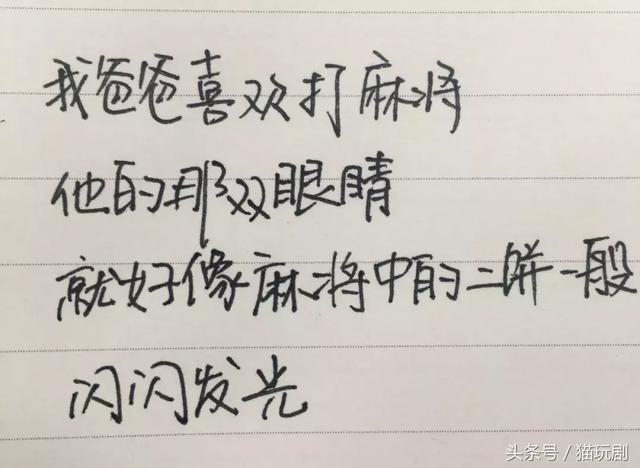 我爸爸喜欢打麻将
他的那双眼睛
就好像麻将中的二饼一般
闪闪发光
头条号/猫玩剧